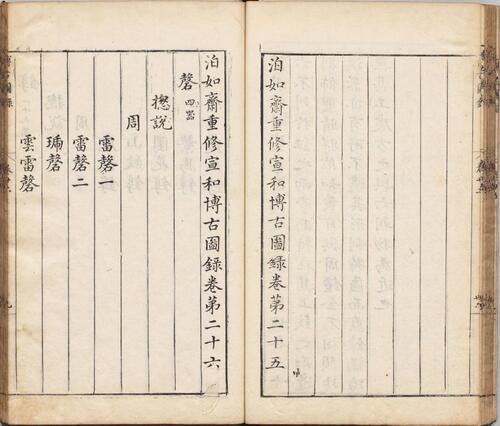 泊如齋重修宣和博古圖錄卷第二十五
泊如齋重修宣和博古圖錄卷第二十六
磬四器
揔說
周
雷磬一
雷磬二
瑀磬
雲雷磬